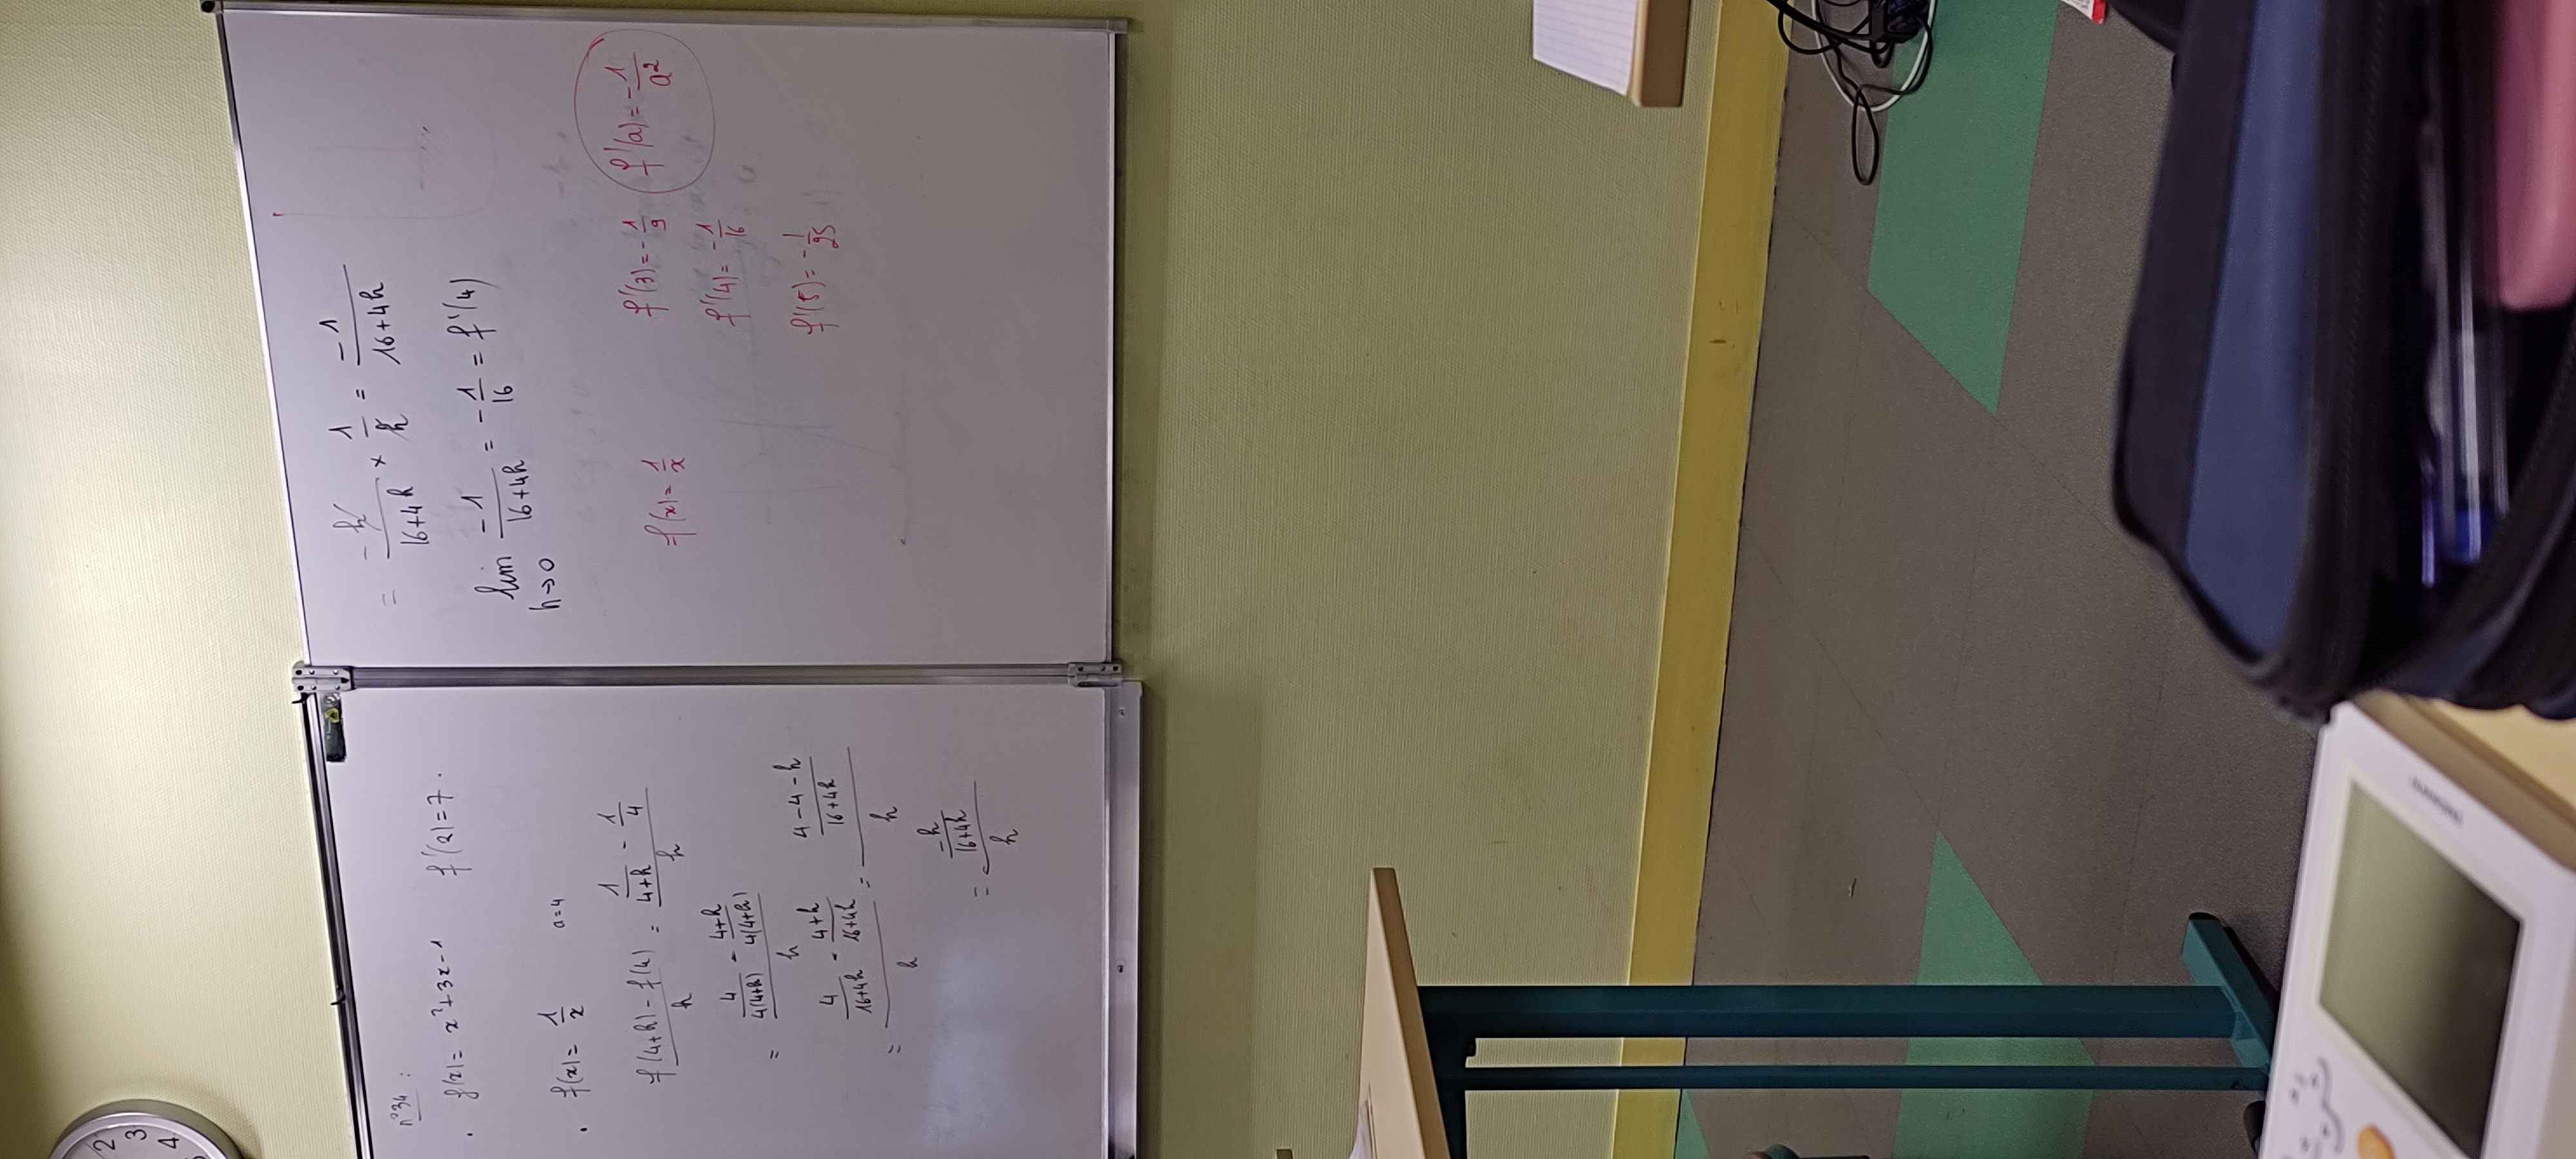 2
3
4
n°34 :
. f(x) = x²+3x-1 f'(2)=7.
. f(x) = 1/x a=4
(f(4+h) - f(4))/h = (1/(4+h) - 1/4)/h
= (4/(4(4+h)) - (4+h)/(4(4+h)))/h
= (4/(16+4h) - (4+h)/(16+4h))/h = ((4-4-h)/(16+4h))/h
= (-h/(16+4h))/h
= -h/(16+4h) × 1/h = -1/(16+4h)
lim h→0 -1/(16+4h) = -1/16 = f'(4)
f(x) = 1/x f'(3) = -1/9 f'(a) = -1/a²
f'(4) = -1/16
f'(5) = -1/25